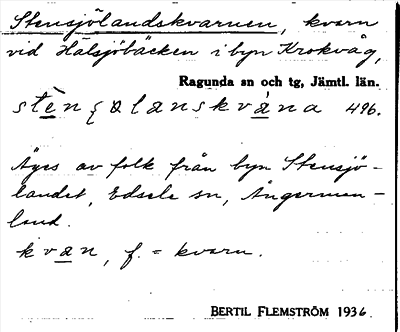 Stensjölandskvarnen, kvarn
vid Hälsjöbäcken i byn Krokvåg,
Ragunda sn och tg, Jämtl. län.
stèn ʃɑlanskvána 496.
Äges av folk från byn Stensjö-
landet, Edsele sn, Ångerman-
land.
kvan, f. = kvarn.
BERTIL FLEMSTRÖM 1936.